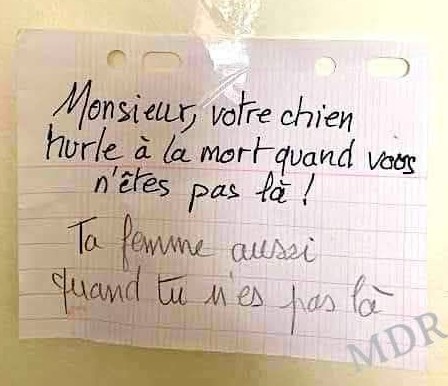 Monsieur, votre chien
hurle à la mort quand vous
n'êtes pas là !
Ta femme aussi
quand tu n'es pas là
MDR